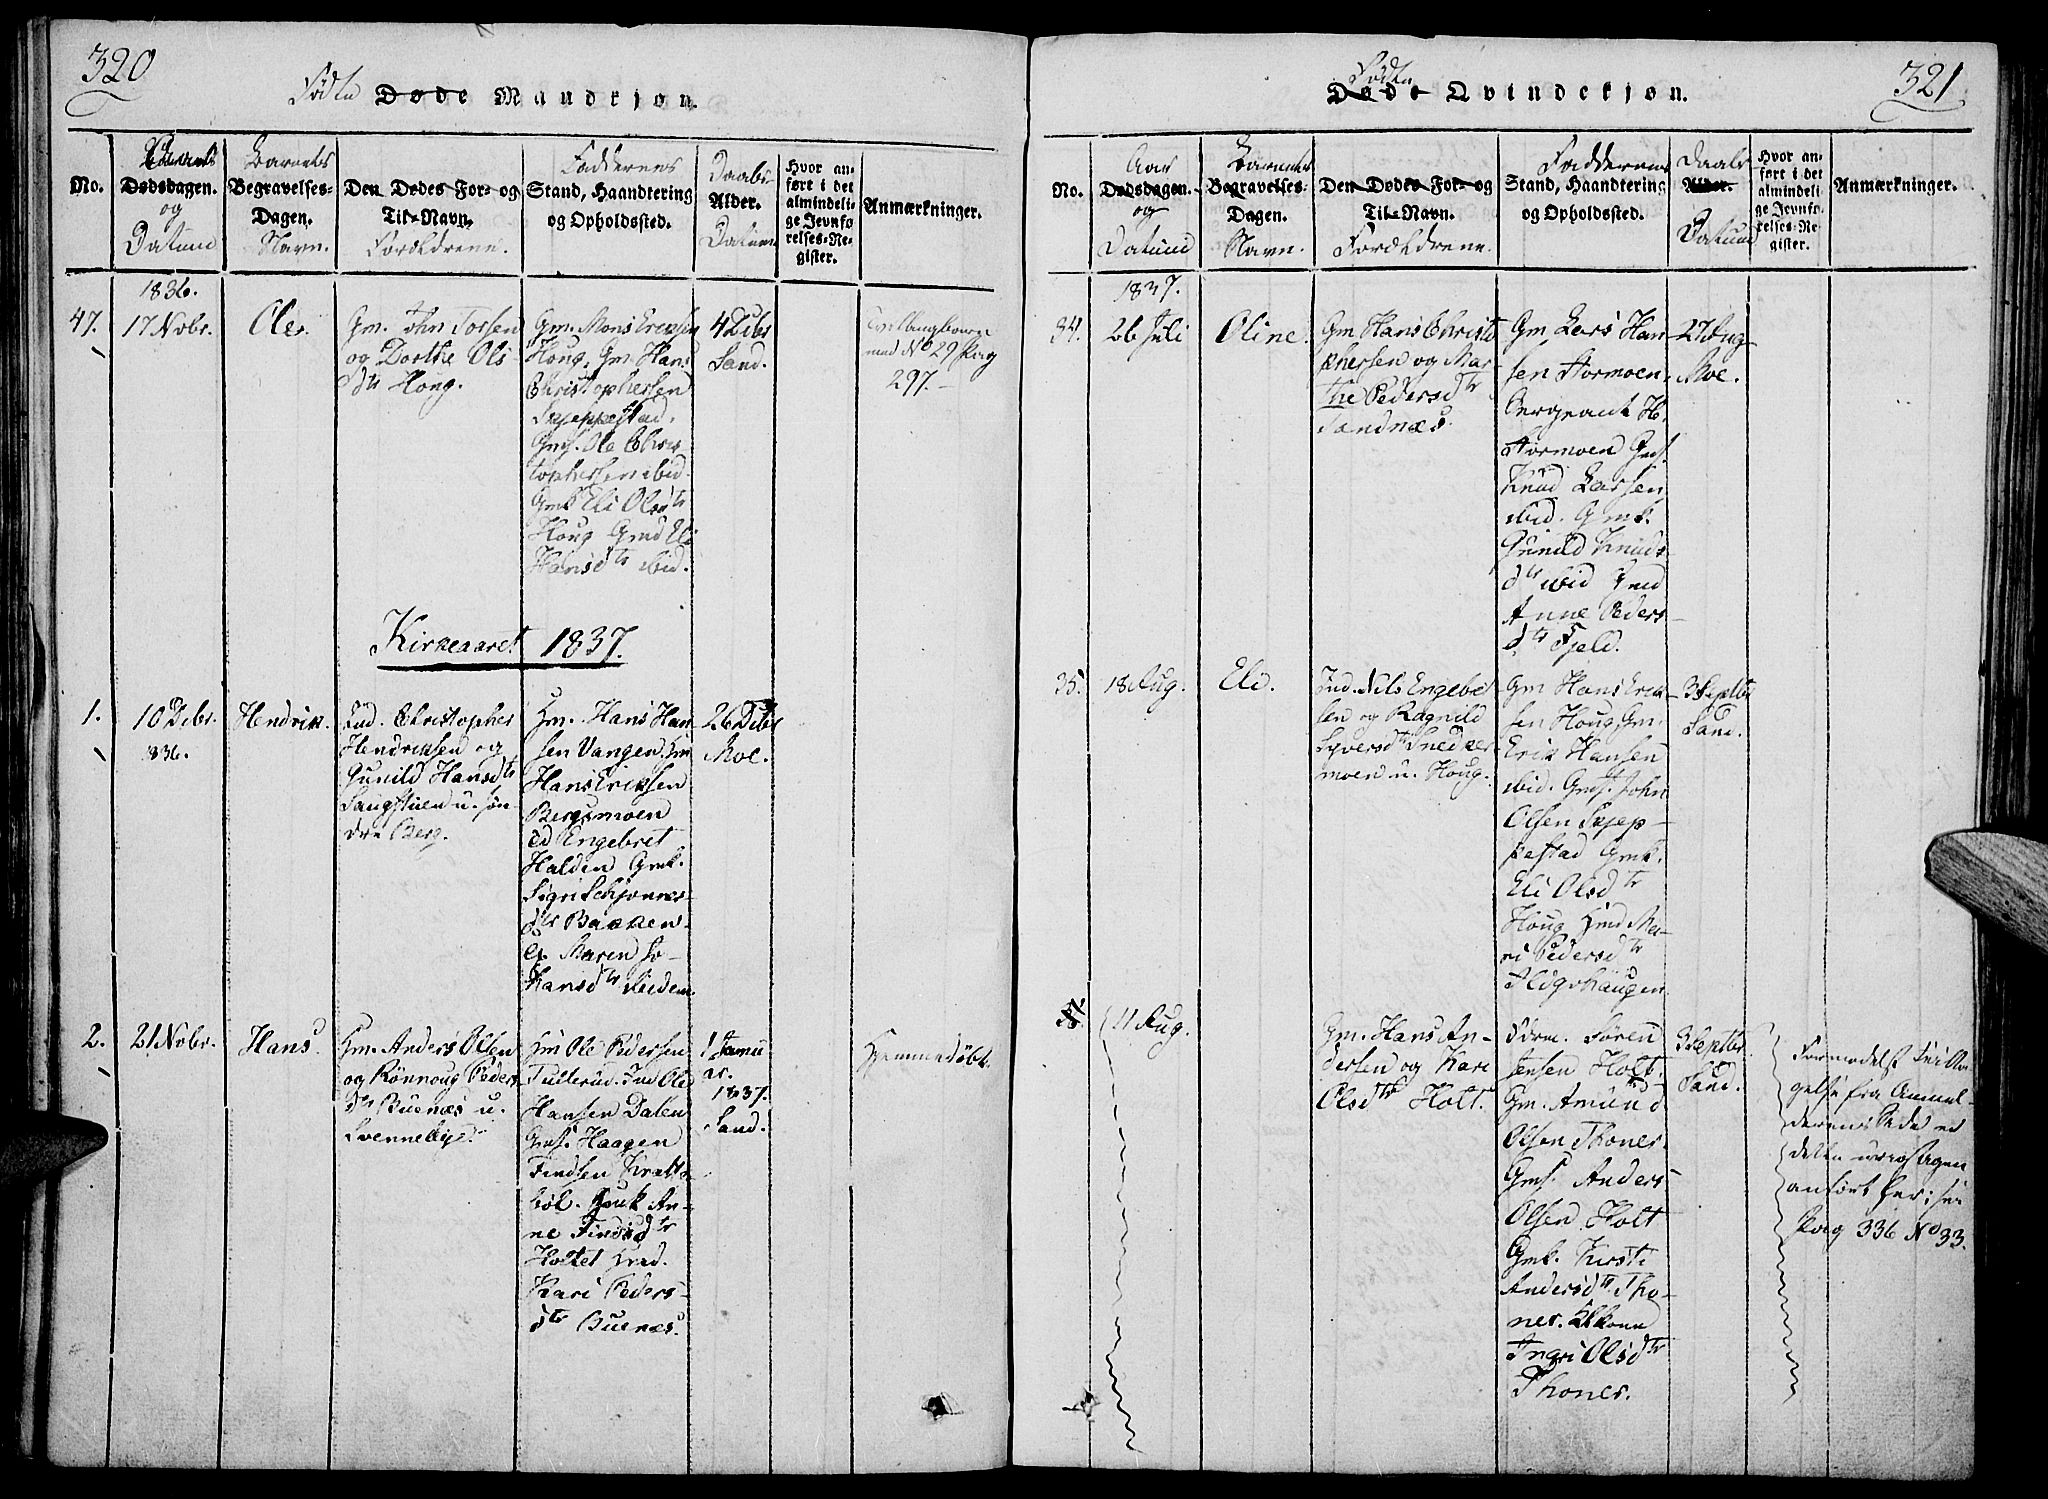 320
Fødte Døde Mandkjøn.
No.
Dødsdagen.
og
Datum
Barnets
Begravelses-
Dagen.
Navn.
Den Dødes For- og
Til-Navn.
Forældrene.
Faddernes
Stand, Haandtering
og Opholdssted.
Daabs-
Alder.
Datum
Hvor an-
ført i det
almindeli-
ge Jevnfø-
relses-Re-
gister.
Anmærkninger.
1836.
47.
17 Nobr.
Ole.
Gm. John Torsen
og Dorthe Ols-
dtr Houg.
Gm. Mons Eriksen
Houg, Gm. Hans
Christophersen
Skjeppestad,
Gms. Ole Chris
tophersen ibid.
Gmk Eli Olsdtr
Houg Gmd Eli
Hansdtr ibid.
4 Debr
Sand.
med No 29 pag
297.
Kirkeaaret 1837.
1.
10 Debr.
836.
Hendrik.
Ind. Christopher
Hendriksen og
Gunild Hansdtr
Saugstuen u. søn-
dre Berg.
Hm. Hans Han
sen Vangen Hm
Hans Eriksen
Bergsmoen
Ed Engebret
Halden Gmk.
Sigri Schjønner-
dtr Bakken.
Maren Jo-
hansdtr
26 Debr
Moe.
2.
21 Nobr.
Hans.
Hm. Anders Olsen
og Rønnoug Peders
dtr Buenæs u.
Svennebye.
Hm Ole Pedersen
Tullerud. Ind Ole
Hansen Dalen
Gms. Haagen
Findsen Kratte-
bøl. Hmk An-
ne Findsdtr
Holtet Hmd.
Kari Peders-
dtr Buenæs.
1 Janu
ar.
1837.
Sand.
Hjemmedøbt.
321
Fødte
Døde Qvindekjøn.
No.
Aar
Dødsdagen.
og
Datum
Barnets
Begravelses-
Dagen.
Navn.
Den Dødes For- og
Til-Navn.
Forældrene.
Faddernes
Stand, Haandtering
og Opholdssted.
Daabs
Alder.
Datum
Hvor an-
ført i det
almindeli-
ge Jevnfø-
relses-Re-
gister.
Anmærkninger.
1837.
34.
26 Juli
Oline.
Gm Hans Christo
phersen og Mar-
the Pedersdtr
Sandnæs.
Gm. Lars Han
sen Stormoen.
Sergeant H.
Stormoen Gms.
Knud Larsen
ibid. Gmk.
Gunild Knuds
dtr ibid Gmd
Anne Peders
dtr Fjeld.
27 Aug
Moe.
35.
18 Aug.
Eli.
Ind. Nils Engebret
sen og Ragnild
Syversdtr Snedker
moen u. Houg.
Gm Hans Erik-
sen Houg, Gm.
Erik Hansen
ibid. Gms. John
Olsen Skjep-
pestad Gmk.
Eli Olsdtr
Houg Hmd Ma-
ri Pedersdtr
3 Septbr
Sand.
11 Aug.
Gm. Hans An-
dersen og Kari
Olsdtr Holt.
Søren
Jensen Holt.
Gm. Amund
Olsen Thoner.
Gms. Anders
Olsen Holt
Gmk. Kirsti
Andersdtr Tho-
ner.
Ingri Olsdtr
Thoner.
3 Septbr.
Sand.
Formedelst
gelse fra Anmel-
derens Side er
dette
anført her; see
pag 336 No 33.